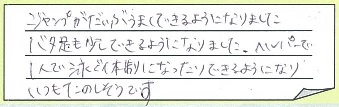 ジャンプがだいぶうまくできるようになりました
バタ足も少しできるようになりました。ヘルパーで
1人で泳ぐ体制になったりできるようになり
いつもたのしそうです